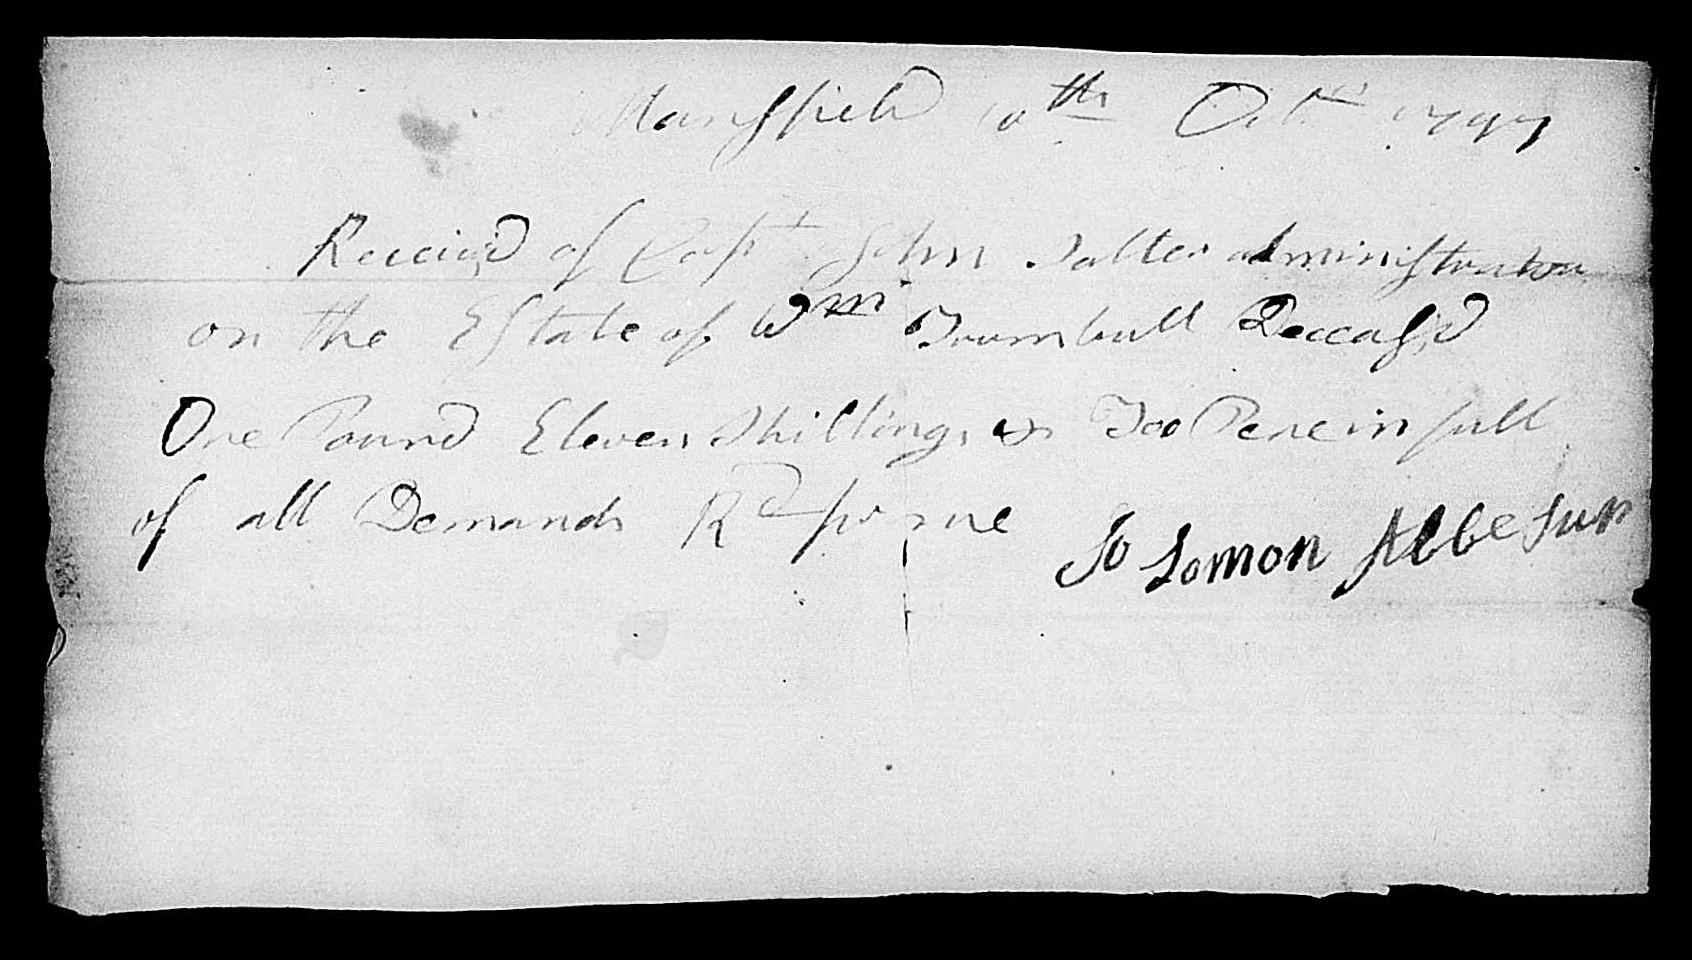 Mansfield 10th Octr 1797
Receiv'd of Capt John Salter administrator
on the Estate of Wm Trumbull Deceas'd
One Pound Eleven Shillings & Too Pence in full
of all Demands Rd pr me
Solomon Abbe Jun